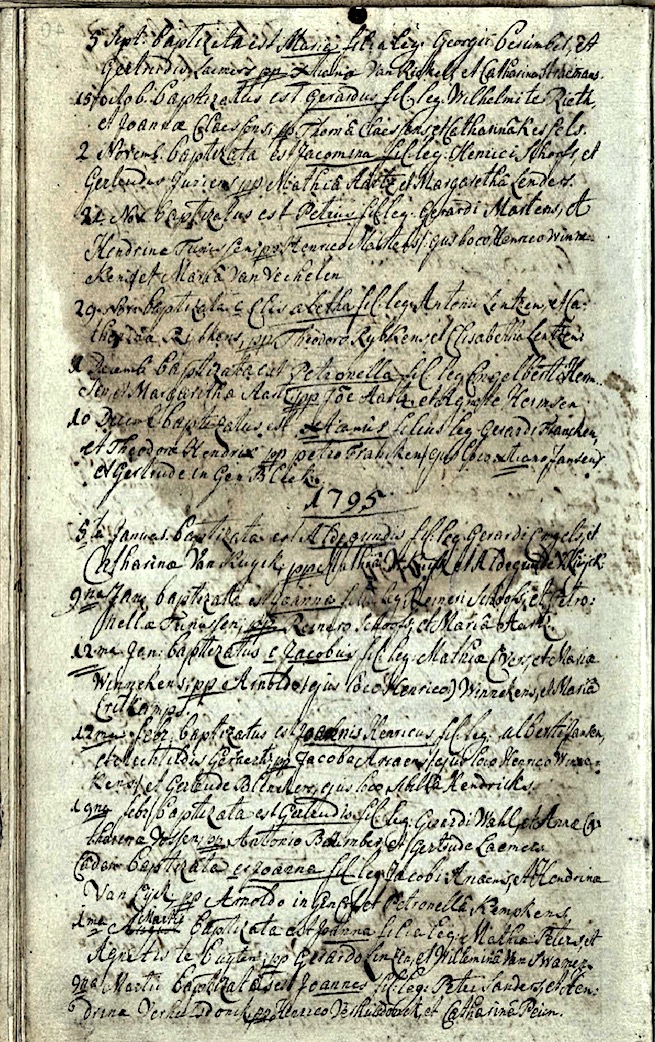 5 Sept. baptizata est Maria fil: leg: Georgii Besimbel, et
Gertrudis Laemers pp Maria Van Rickelt et Catharina
15 octob. baptizatus est Gerardus fil: leg: Wilhelmi te Rieth,
et Joanna Claessens; pp Thoma Claessens et Catharina Kessels.
2 Novemb. baptizata est Jacomina fil: leg: Henrici Schoofs et
Gertrudis Juriens pp Mathia Aartz et Margaretha Lenders.
21 Nov baptizatus est Petrus fil: leg: Gerardi Martens, et
Hendrina Tunissen; pp Henrico Martens ejus loco Henrico Winne-
kens et Maria Van Vechelen
29 9bris baptizata e Elisabetha fil: leg: Antonii Lentzen, et Ca-
tharina Rybkens, pp Theodoro Rybkens, et Elisabetha Lentzen
Decemb baptizata est Petronella fil: leg Engelberti Herm-
sen et Margaretha Aartz pp Joe Aartz, et Agnete Hermsen
10 Decemb baptizatus est filius leg Gerardi Francken,
et Theodora Hendrix pp petro Francken (ejus loco Jansen)
et Gertrude in Gen Bleek.
1795
5 ta Januar. baptizata est Aldegundis fil: leg: Gerardi Engels, et
Catharina Van Kuyck, pp Mathia V: Kuyk et Aldegunde V: Kuijck
9 na Janu baptizata est Joanna fil: leg: Reineri Schoofs, et Petro-
nella Tunissen; pp Reinero Schoofs, et Maria Aartz
12 ma Jan: baptizatus e Jacobus fil: leg: Mathia Evers, et Maria
Winnekens; pp Arnoldo (ejus loco Henrico) Winnekens, et Maria
Critkamps.
12 ma febr. baptizatus est Joannis Henricus fil: leg: alberti Jansen,
et Mechtildis Gerrerts; pp Jacobo Ariaens (ejus loco Henrico Winne-
kens) et Gertrude ejus loco Hendricks.
19 na febr baptizata est Gertrudis fil: leg: Gerardi Wahl, et Anna Ca-
tharina Jossen; pp Antonio et Gertrude Laemers
Eadem baptizata est Joanna fil: leg Jacobi Ariaens, et Hendrina
Van Eyck, pp Arnoldo in Gen et Petronella Kempkens,
1 ma Martii baptizata est Joanna filia leg: Mathia Peters et
Agnetis te Buyten; pp Gerardo Linssen, et Willemina Van Swamen
Martii baptizatus est Joannes fil: leg: Petri Sanders, et Hen-
drina Verhulsdonck, pp Henrico Verhulsdonck, et Catharina Peim.